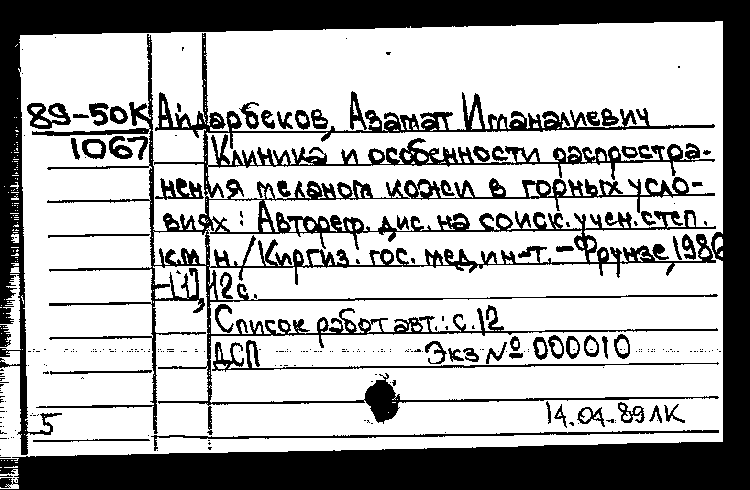 89-50К Айдарбеков, Азамат Иманалиевич
1067 Клиника и особенности распростра-
нения меланом кожи в горных усло-
виях: Автореф. дис. на соиск. учен. степ.
к.м.н./Киргиз. гос. мед. ин-т. - Фрунзе, 1986
-[1], 12 с.
Список работ авт.: с. 12
ДСП Экз № 000010
5 14.04.89 ЛК